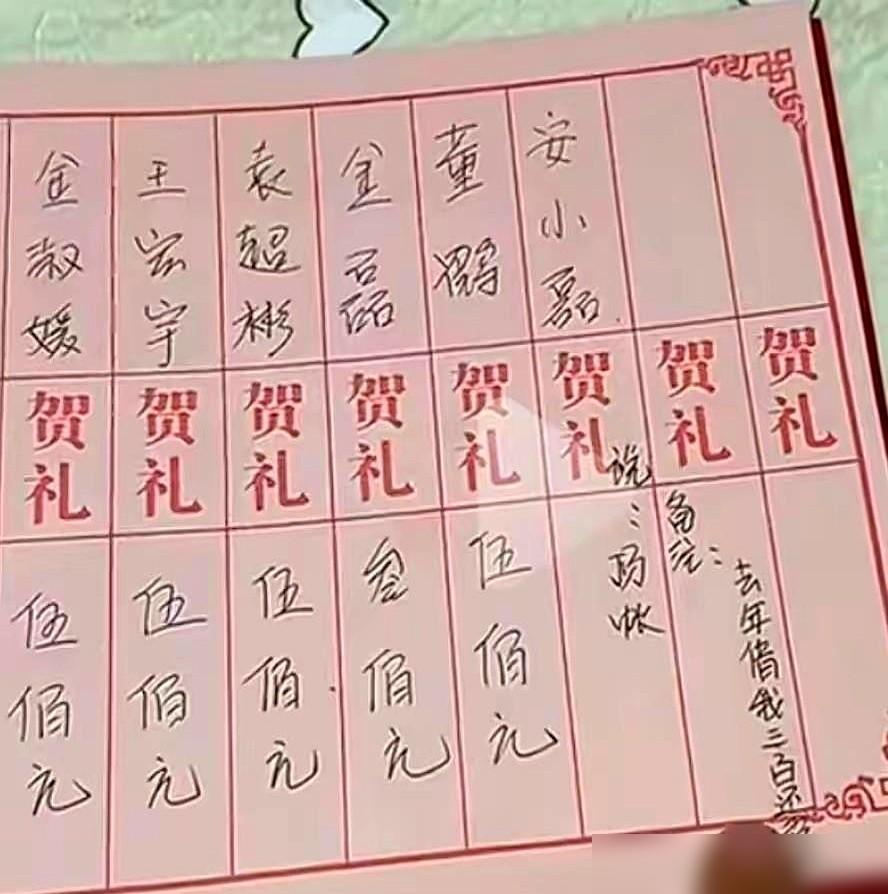 金淑媛
贺礼
伍佰元
王宏宇
贺礼
伍佰元
袁超彬
贺礼
伍佰元
金磊
贺礼
叁佰元
董
贺礼
伍佰元
安小磊.
贺礼
说:
帐
贺礼
备注:
贺礼
去年借我三百还